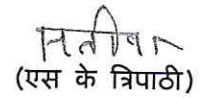 (एस के त्रिपाठी)